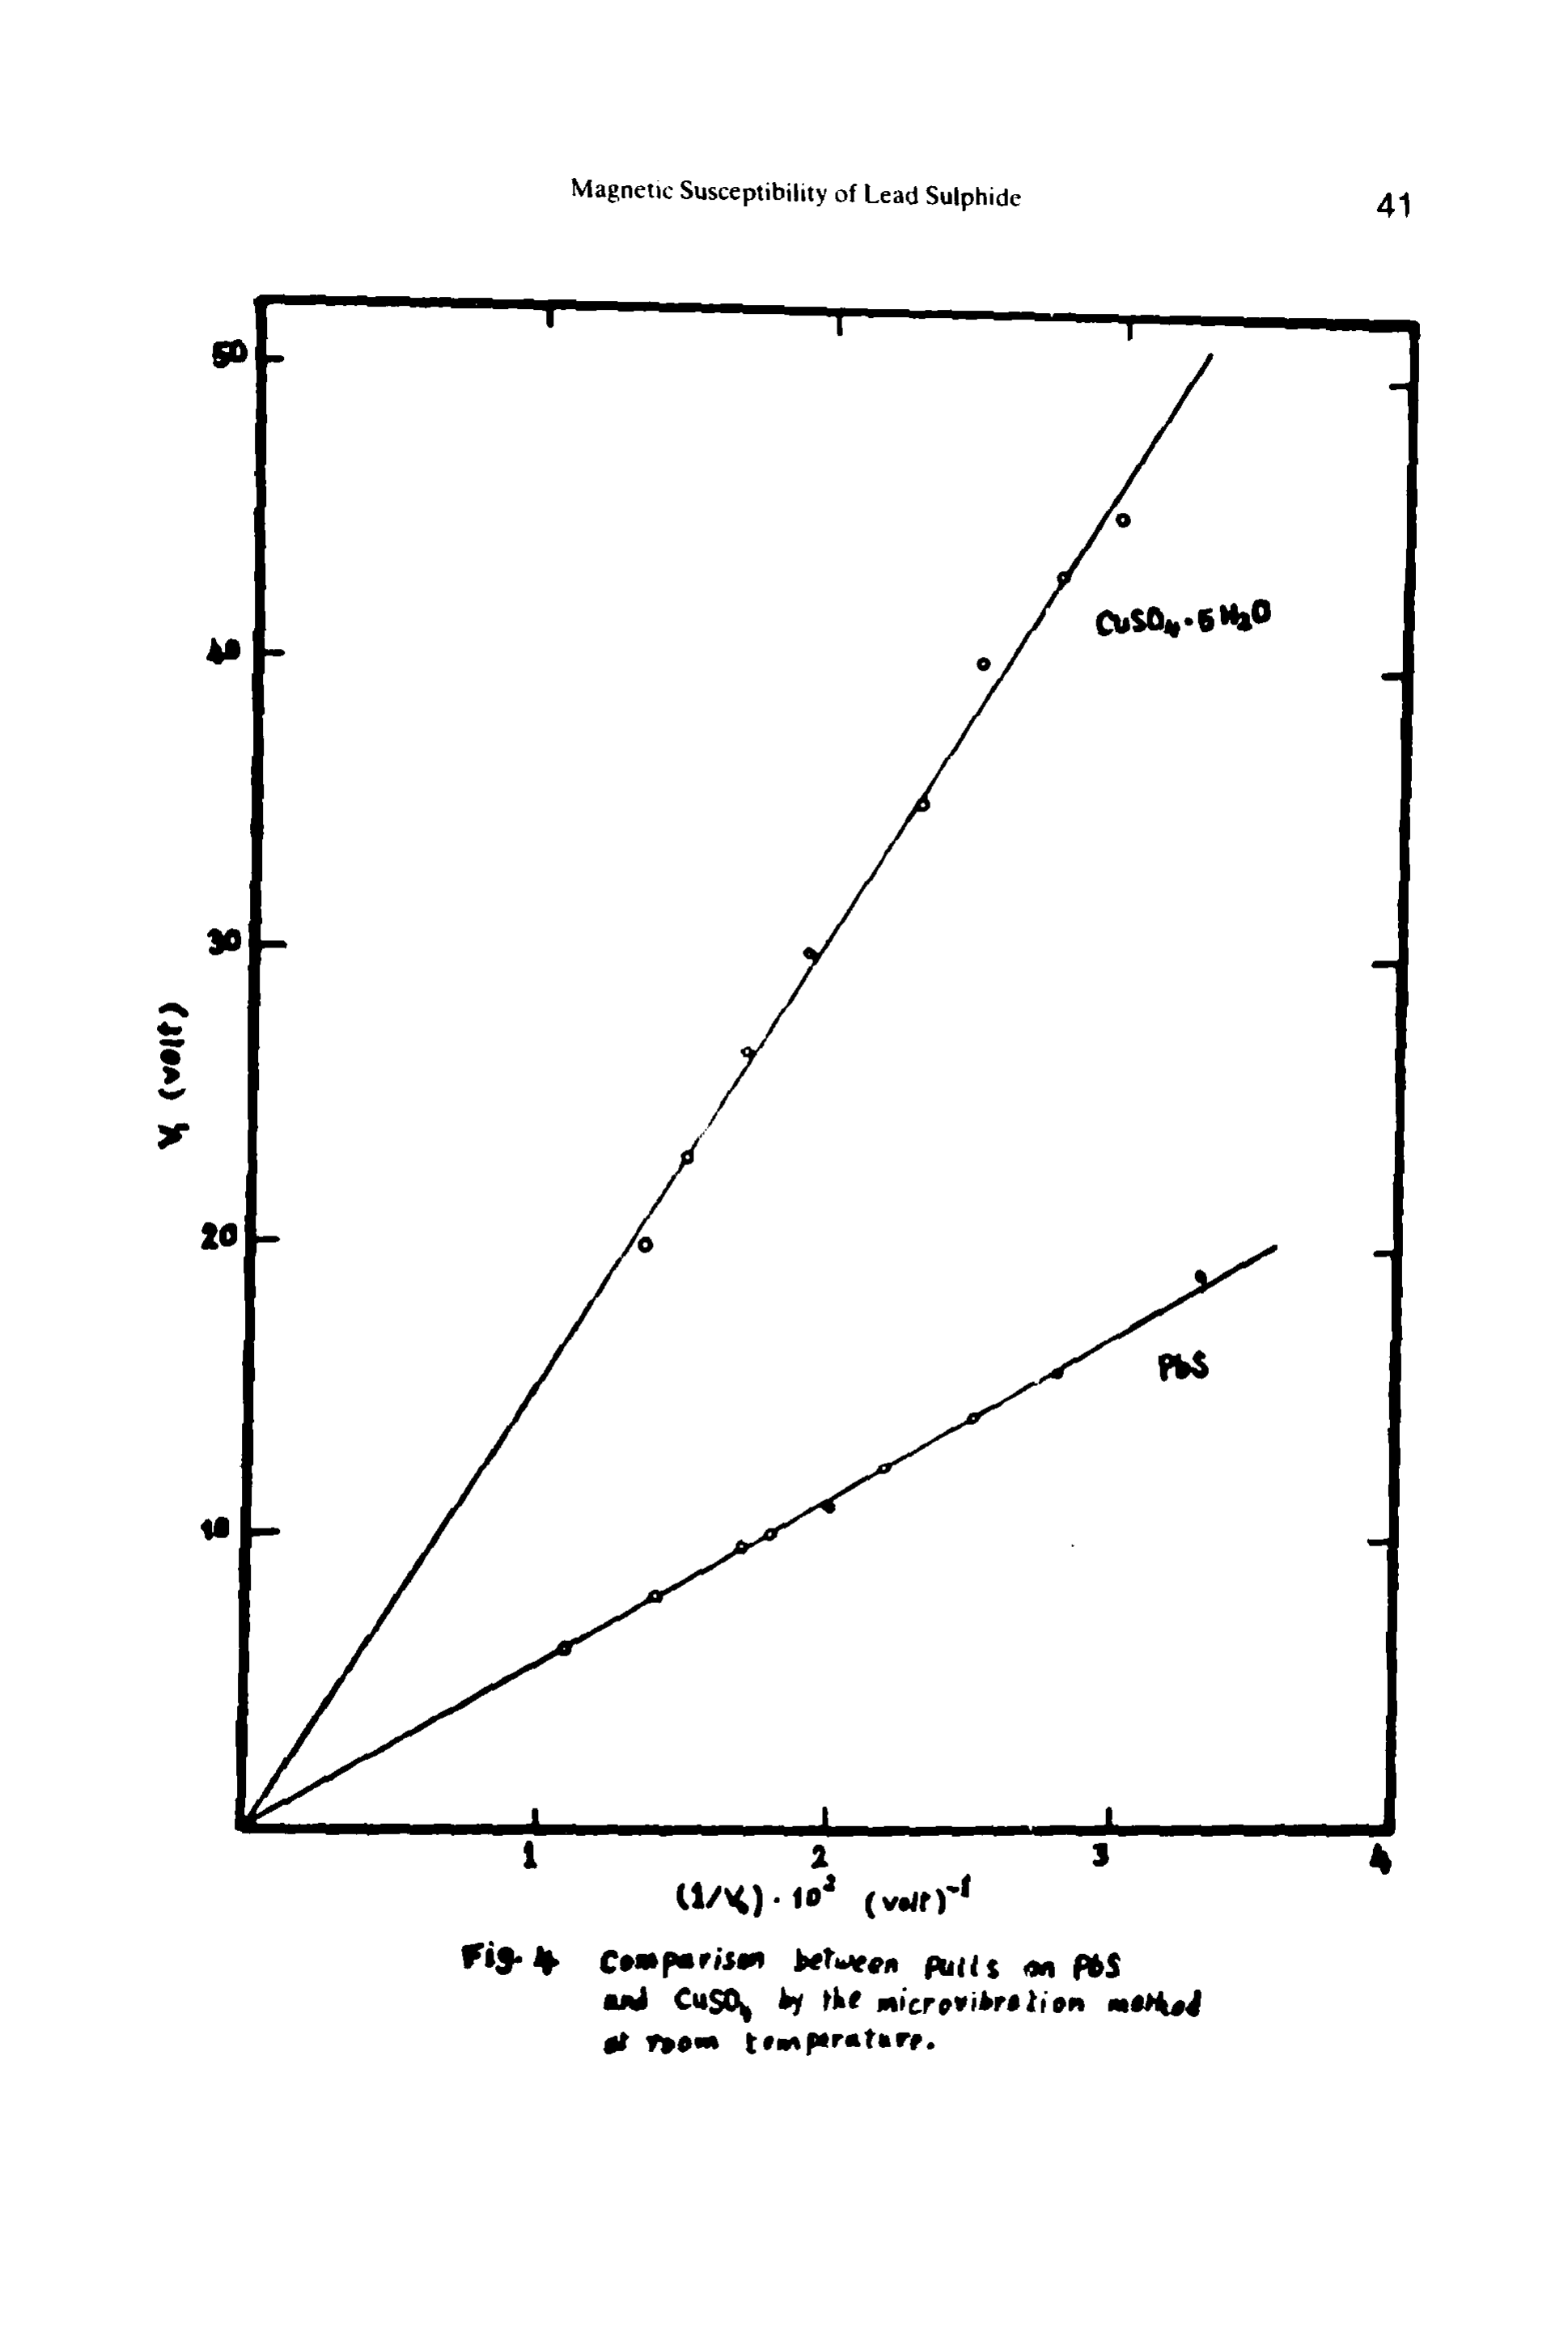 Magnetic Susceptibility of Lead Sulphide
41
50
40
30
20
10
V₁ (volt)
CuSO₄·5H₂O
PbS
1 2 3 4
(1/V₀)·10² (volt)⁻¹
Fig. 4 Comparison between pulls on PbS
and CuSO₄ by the microvibration method
at room temperature.